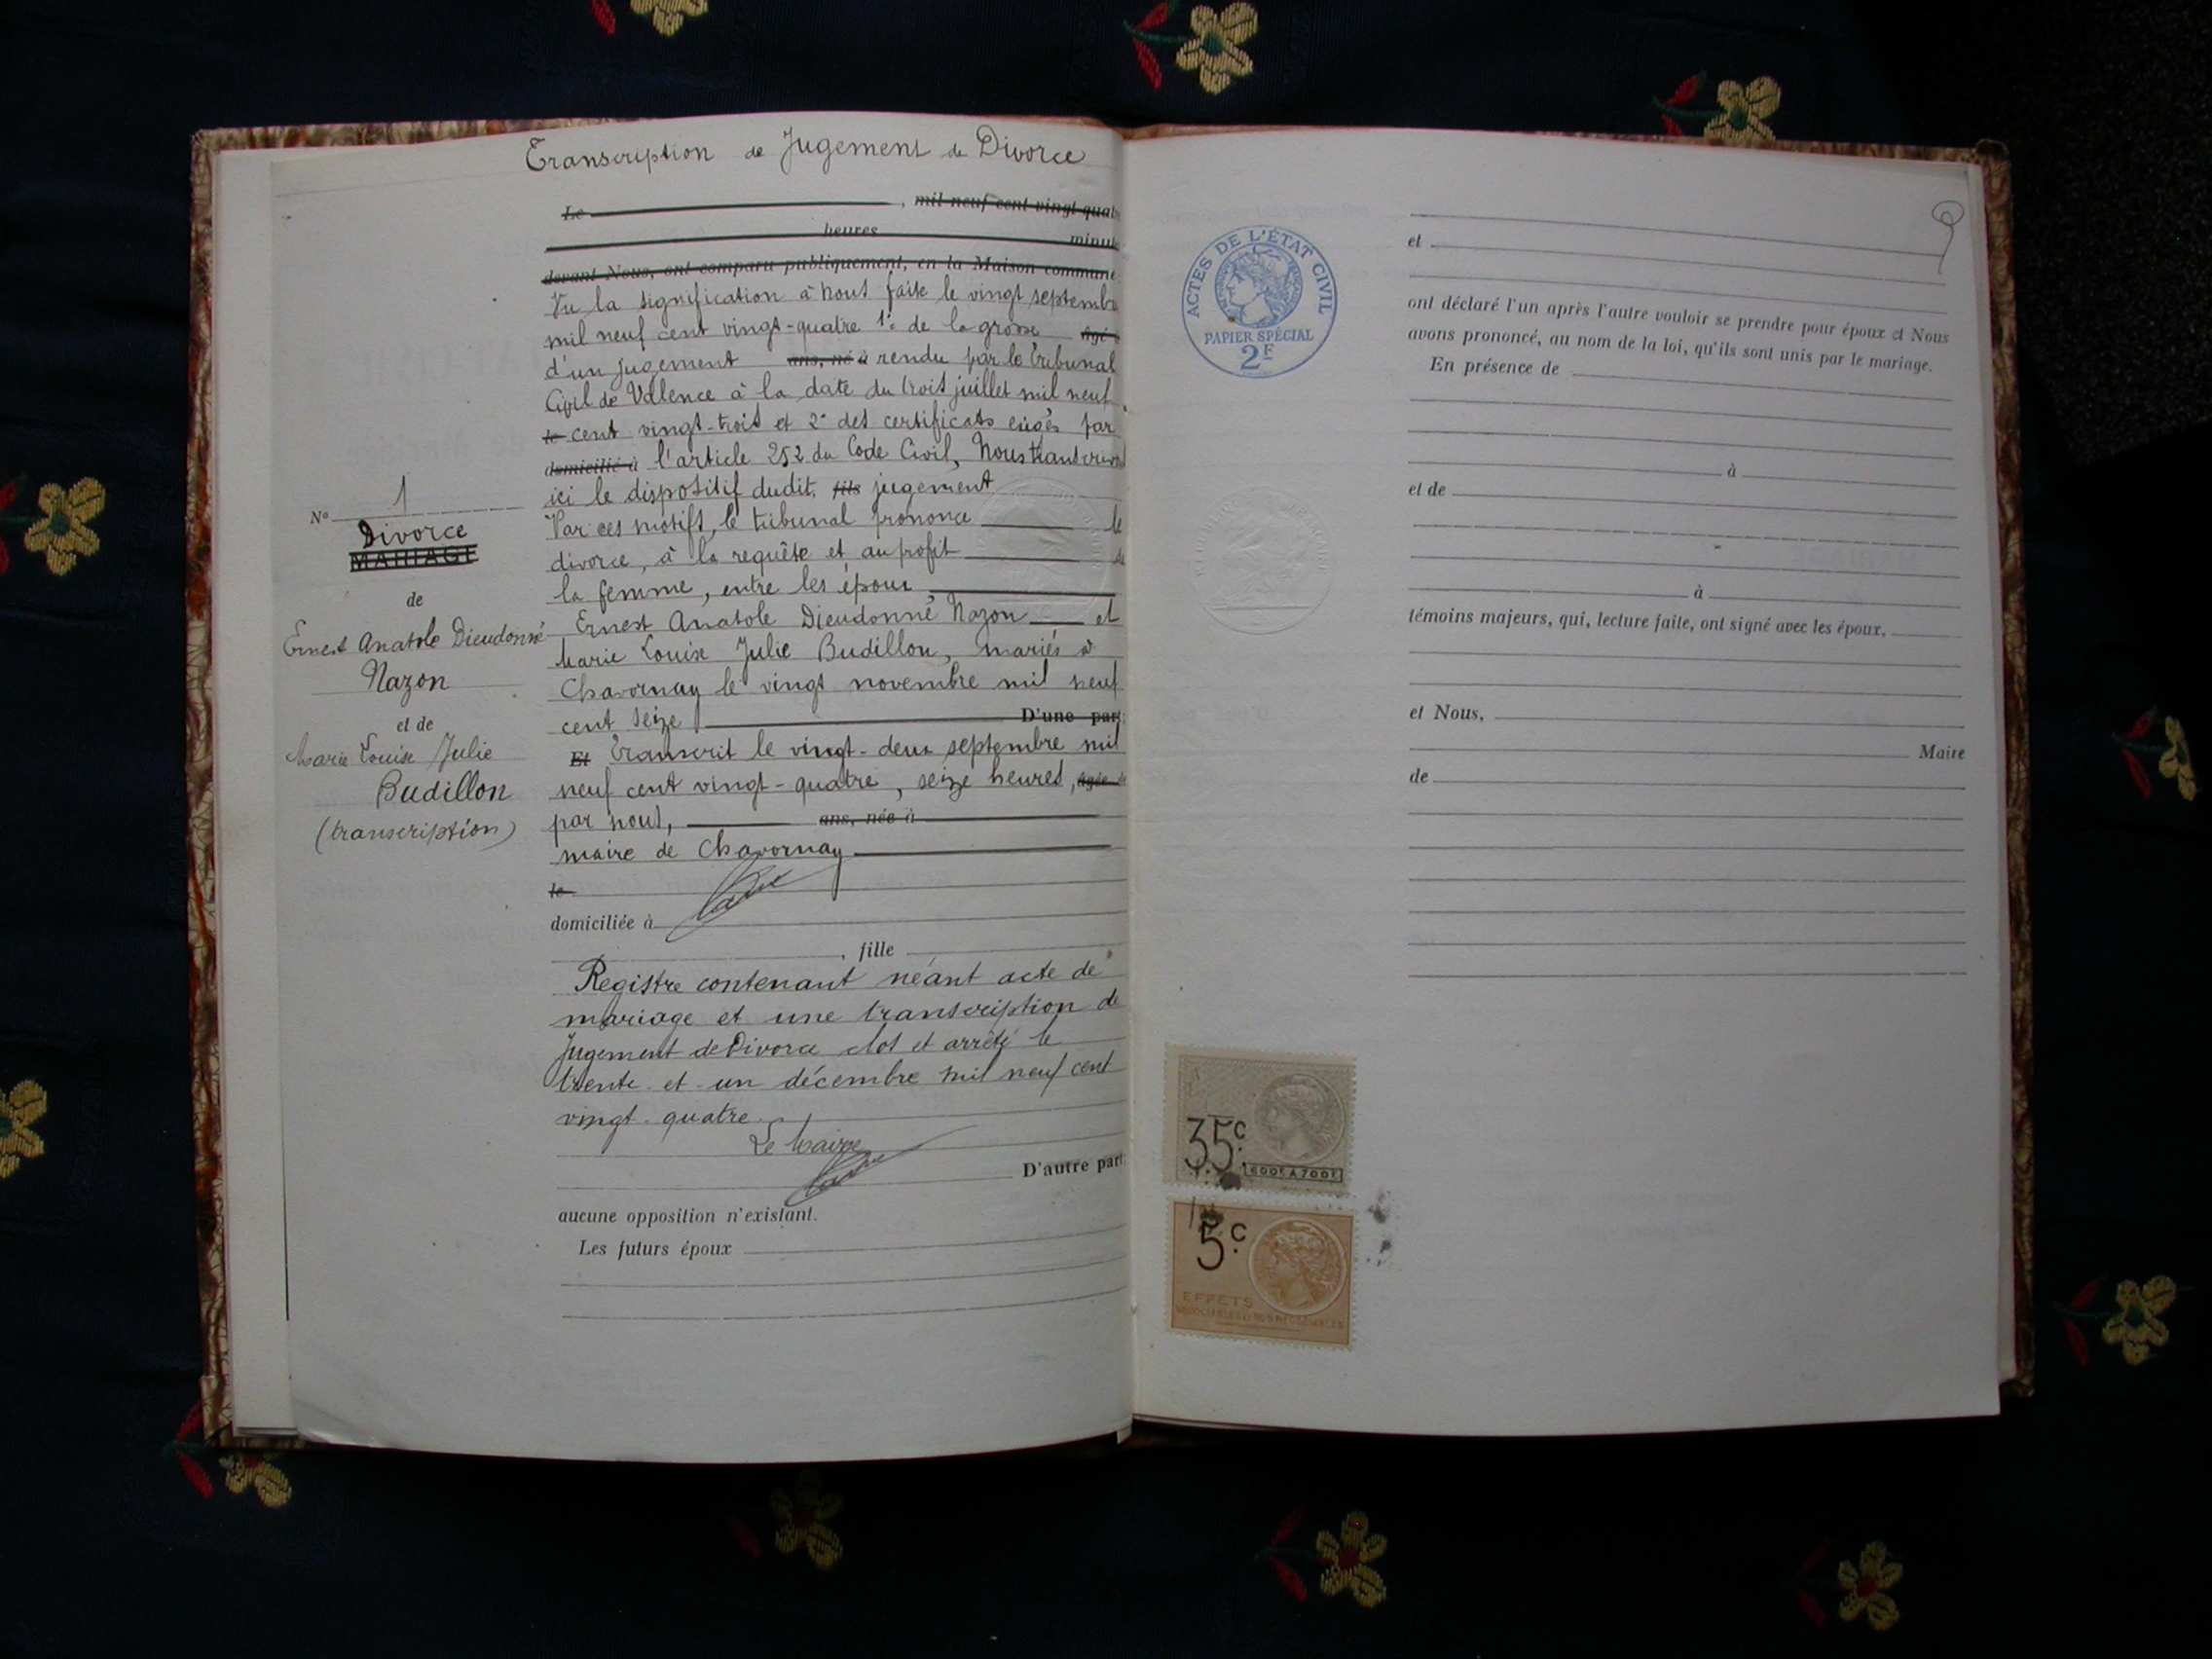 Transcription de Jugement de Divorce
Le , mil neuf cent vingt quat
heures minute
devant Nous, ont comparu publiquement, en la Maison commune
Vu la signification à nous faite le vingt septembre
mil neuf cent vingt-quatre 1° de la grosse âgé
d'un jugement ans, né à rendu par le Tribunal
Civil de Valence à la date du trois juillet mil neuf
le cent vingt-trois et 2° des certificats exigés par
domicilié à l'article 252 du Code Civil, Nous transcrivons
ici le dispositif dudit, fils jugement
Par ces motifs, le tribunal prononce le
divorce, à la requête et au profit de
la femme, entre les époux
Ernest Anatole Dieudonné Nazon et
Marie Louise Julie Budillon, mariés à
Chavornay le vingt novembre mil neuf
cent seize D'une part
Et Transcrit le vingt-deux septembre mil
neuf cent vingt-quatre, seize heures, âgée de
par nous, ans, née à
maire de Chavornay
le
domiciliée à
, fille
Registre contenant néant acte de
mariage et une transcription de
Jugement de Divorce clos et arrêté le
trente et un décembre mil neuf cent
vingt-quatre
Le Maire
D'autre part
aucune opposition n'existant.
Les futurs époux
N° 1
Divorce
MARIAGE
de
Ernest Anatole Dieudonné
Nazon
et de
Marie Louise Julie
Budillon
(transcription)
ACTES DE L'ÉTAT CIVIL
PAPIER SPÉCIAL
2F
et
ont déclaré l'un après l'autre vouloir se prendre pour époux et Nous
avons prononcé, au nom de la loi, qu'ils sont unis par le mariage.
En présence de
à
et de
à
témoins majeurs, qui, lecture faite, ont signé avec les époux,
et Nous,
Maire
de
35c.
600F A 700F
5c.
EFFETS